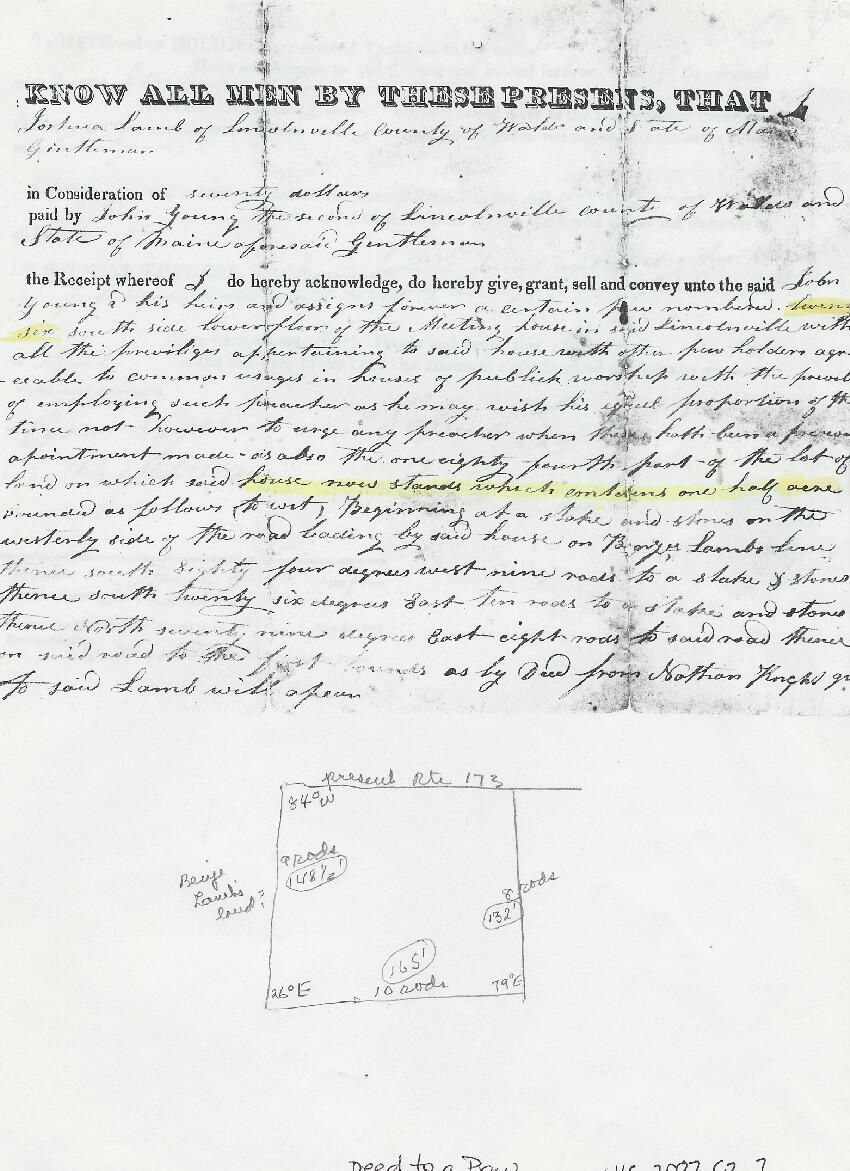 KNOW ALL MEN BY THESE PRESENS, THAT I
Joshua Lamb of Lincolnville County of Waldo and State of Ma
Gentleman
in Consideration of seventy dollars
paid by John Young the second of Lincolnville county of Waldo and
State of Maine aforesaid Gentleman
the Receipt whereof I do hereby acknowledge, do hereby give, grant, sell and convey unto the said John
Young & his heirs and assigns forever a certain pew numbered twen
six south side lower floor of the Meeting house in said Lincolnville with
all the priviliges appertaining to said house with other pew holders agre
-eable to common usages in houses of publick worship with the privil
of employing such preacher as he may wish his equal proportion of th
time not however to urge any preacher when there hath been a previou
apointment made - as also the one eighty fourth part of the lot of
land on which said house now stands which contains one half acre
bounded as follows (to wit) Beginning at a stake and stones on the
westerly side of the road leading by said house on Benjes Lambs line
thence south Eighty four degrees west nine rods to a stake & stones
thence south twenty six degrees East ten rods to a stake and stones
thence North seventy nine degrees East eight rods to said road thence
on said road to the first bounds as by Deed from Nathan Knight
to said Lamb will apear
present Rte 173
84° W
9 rods
148½'
Benje
Lamb's
land?
8 rods
132'
165'
26° E
10 rods
79° E
Deed to a Pew